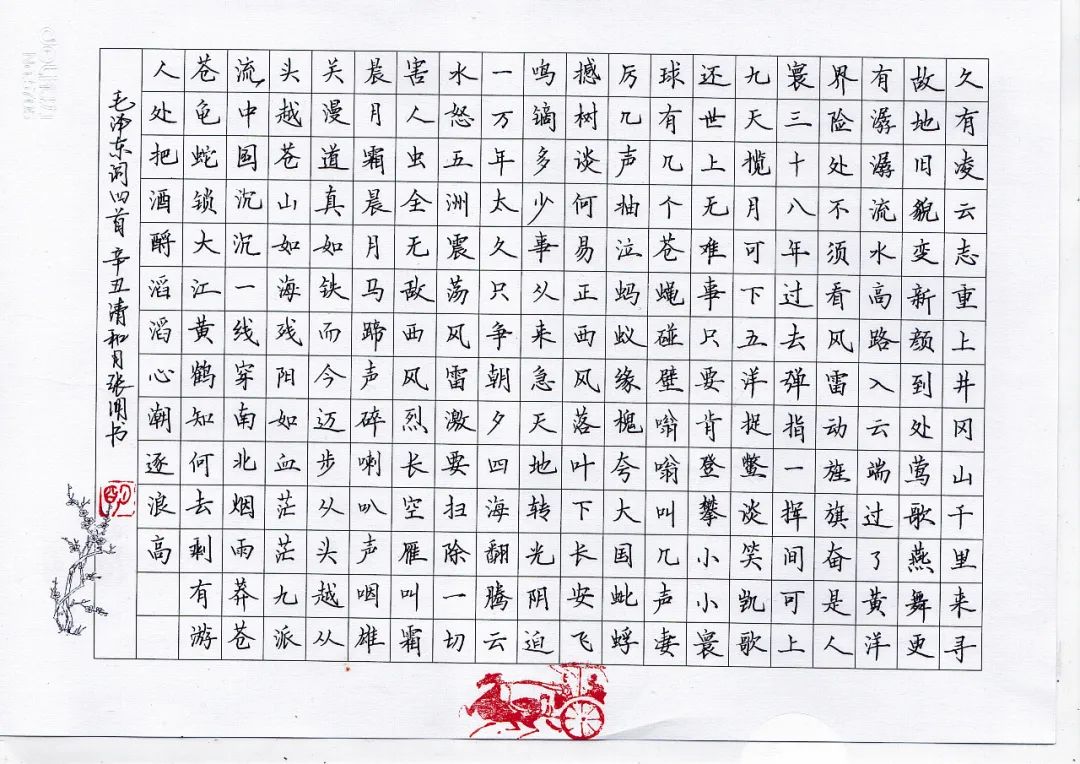 久有凌云志重上井冈山千里来寻
故地旧貌变新颜到处莺歌燕舞更
有潺潺流水高路入云端过了黄洋
界险处不须看风雷动旌旗奋是人
寰三十八年过去弹指一挥间可上
九天揽月可下五洋捉鳖谈笑凯歌
还世上无难事只要肯登攀小小寰
球有几个苍蝇碰壁嗡嗡叫几声凄
厉几声抽泣蚂蚁缘槐夸大国蚍蜉
撼树谈何易正西风落叶下长安飞
鸣镝多少事从来急天地转光阴迫
一万年太久只争朝夕四海翻腾云
水怒五洲震荡风雷激要扫除一切
害人虫全无敌西风烈长空雁叫霜
晨月霜晨月马蹄声碎喇叭声咽雄
关漫道真如铁而今迈步从头越从
头越苍山如海残阳如血茫茫九派
流中国沉沉一线穿南北烟雨莽苍
苍龟蛇锁大江黄鹤知何去剩有游
人处把酒酹滔滔心潮逐浪高
毛泽东词四首 辛丑清和月张书